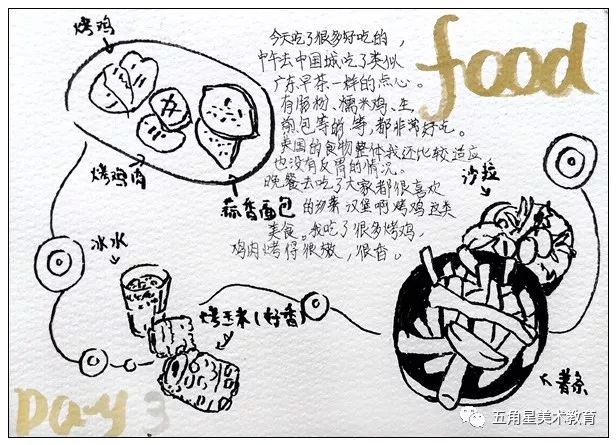 烤鸡
今天吃了很多好吃的，
中午去中国城吃了类似
广东早茶一样的点心。
有肠粉、糯米鸡、生
煎包等等，都非常好吃。
美国的食物整体我还比较适应
也没有反胃的情况。
晚餐去吃了大家都很喜欢
的 汉堡啊烤鸡这类
美食。我吃了很多烤鸡，
鸡肉烤得很嫩，很香。
food
烤鸡肉
蒜香面包
沙拉
冰水
烤玉米（好香）
大薯条
Day 3
五角星美术教育